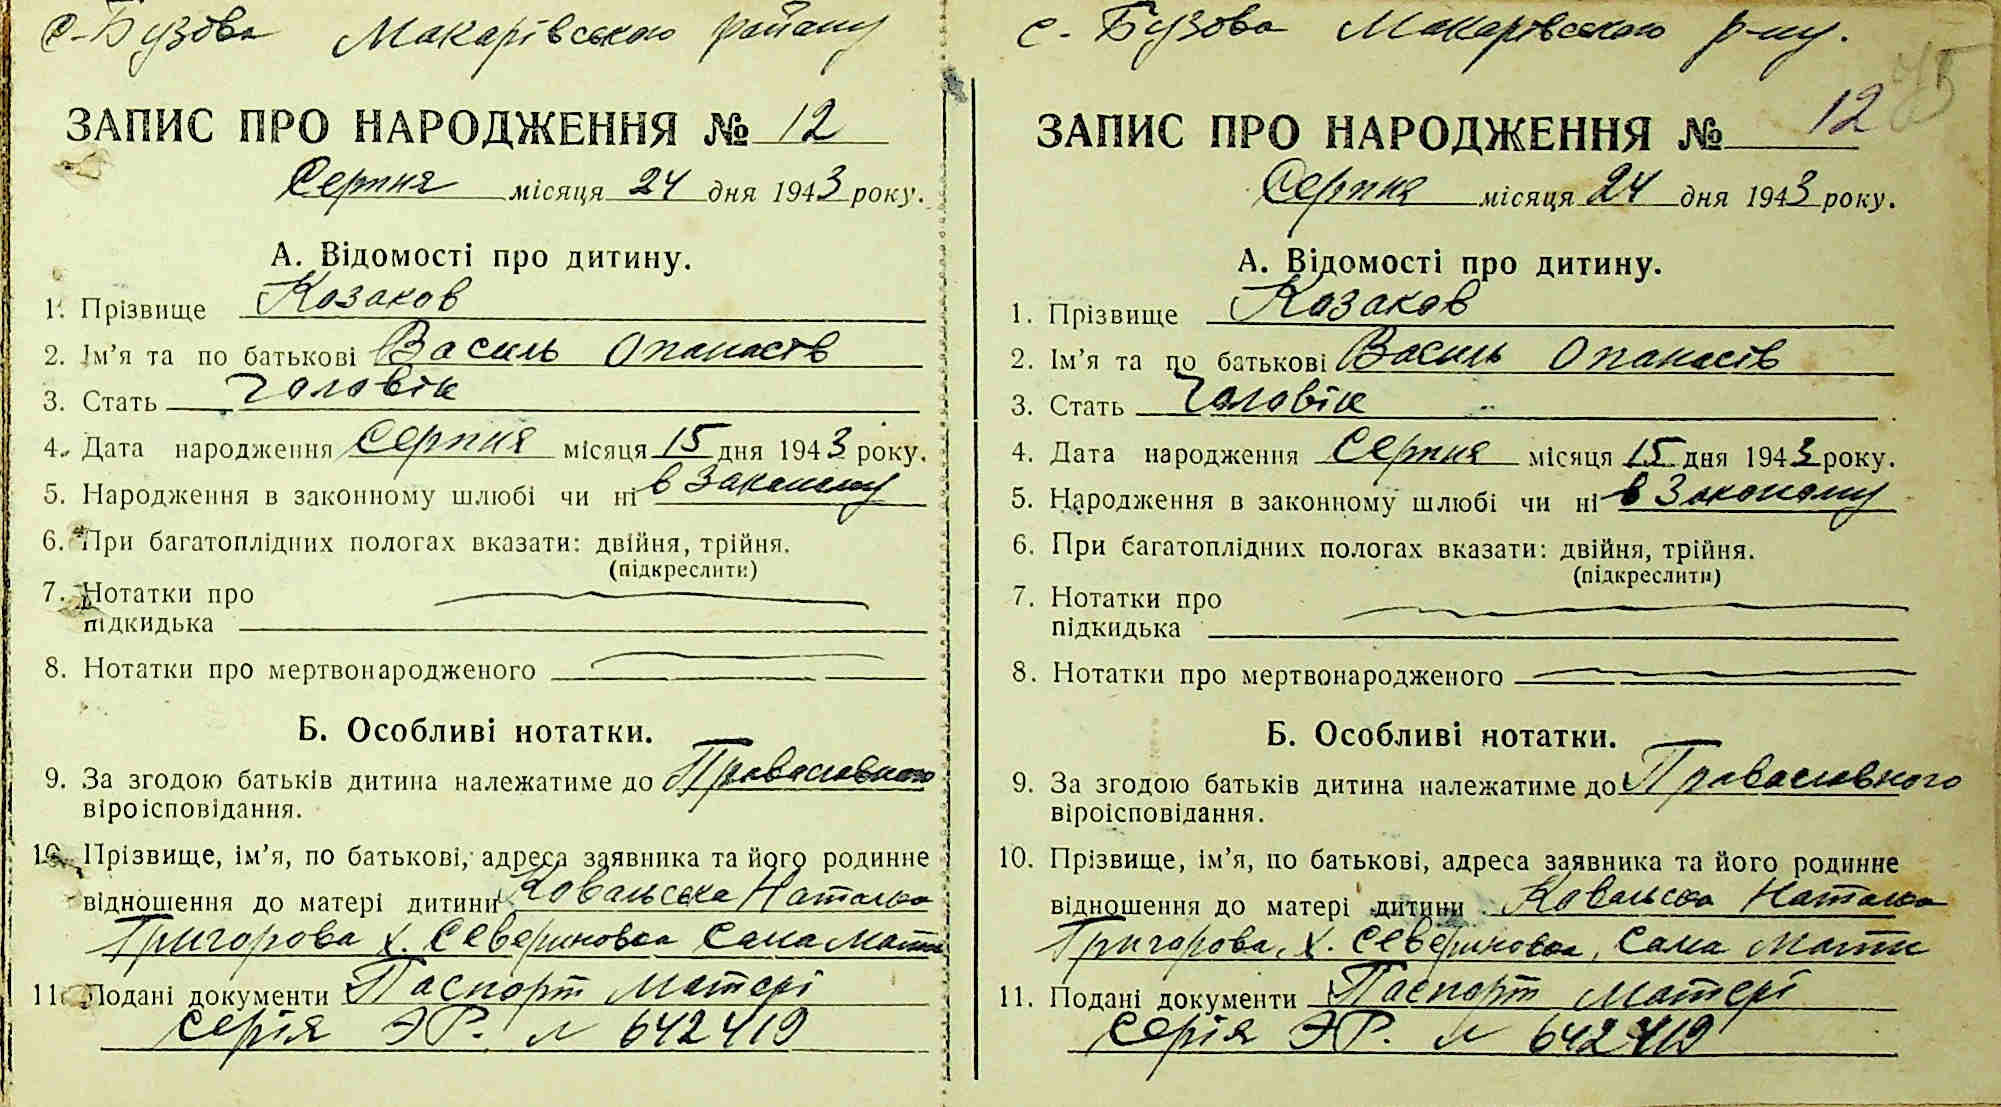 с. Бузова Макарівського району
ЗАПИС ПРО НАРОДЖЕННЯ № 12
Серпня місяця 24 дня 1943 року.
А. Відомості про дитину.
1. Прізвище Козаков
2. Ім'я та по батькові Василь Опанасів
3. Стать Чоловік
4. Дата народження Серпня місяця 15 дня 1943 року.
5. Народження в законному шлюбі чи ні в Законому
6. При багатоплідних пологах вказати: двійня, трійня.
(підкреслити)
7. Нотатки про
підкидька
8. Нотатки про мертвонародженого
Б. Особливі нотатки.
9. За згодою батьків дитина належатиме до Православного
віроісповідання.
10. Прізвище, ім'я, по батькові, адреса заявника та його родинне
відношення до матері дитини Ковальська Наталка
Григорова х. Севериновка сама мати
11. Подані документи Паспорт матері
серія ЭР. № 642419
с. Бузова Макарівського р-ну.
75
ЗАПИС ПРО НАРОДЖЕННЯ № 12
Серпня місяця 24 дня 1943 року.
А. Відомості про дитину.
1. Прізвище Козаков
2. Ім'я та по батькові Василь Опанасів
3. Стать Чоловік
4. Дата народження Серпня місяця 15 дня 1943 року.
5. Народження в законному шлюбі чи ні в Законому
6. При багатоплідних пологах вказати: двійня, трійня.
(підкреслити)
7. Нотатки про
підкидька
8. Нотатки про мертвонародженого
Б. Особливі нотатки.
9. За згодою батьків дитина належатиме до Православного
віроісповідання.
10. Прізвище, ім'я, по батькові, адреса заявника та його родинне
відношення до матері дитини Ковальска Наталка
Григорова, х. Севериновка, сама мати
11. Подані документи Паспорт матері
серія ЭР. № 642419